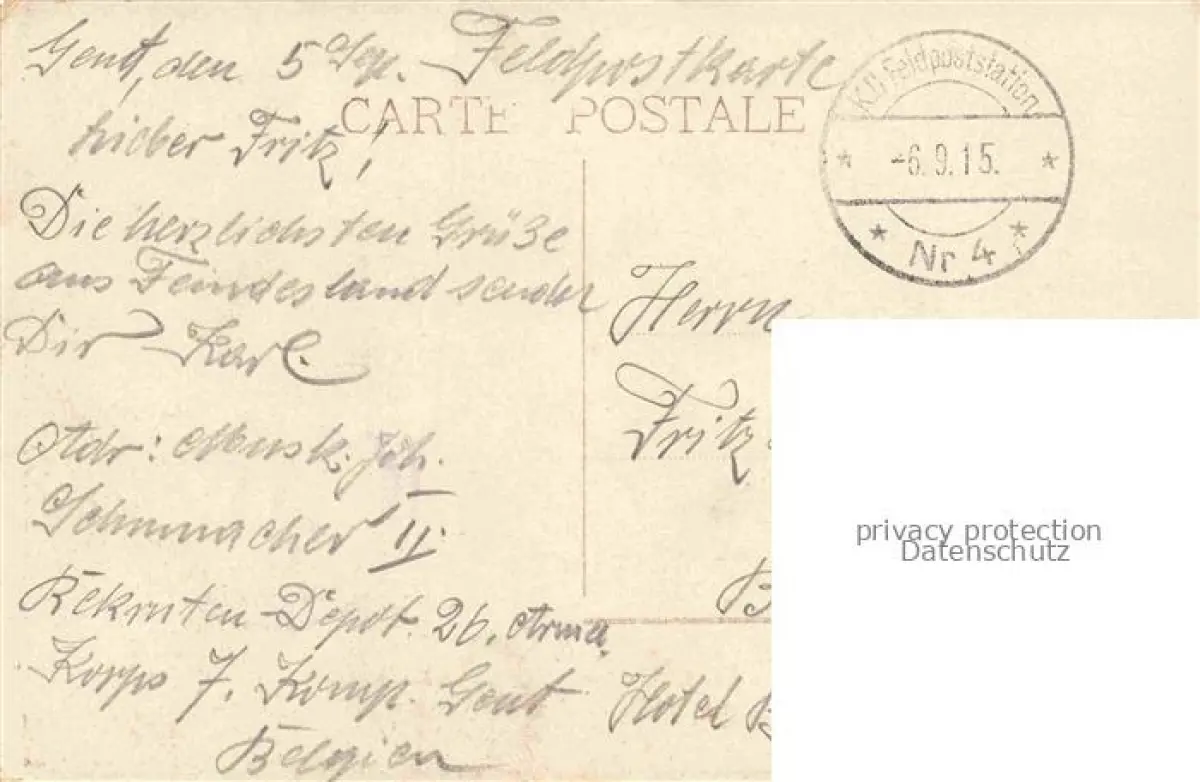 Gent, den 5 Sep. Feldpostkarte
CARTE POSTALE
K.D. Feldpoststation
-6.9.15.
Nr 4
Lieber Fritz!
Die herzlichsten Grüße
aus Feindesland sendet
Dir Karl.
Adr: Musk. Joh.
Schumacher II.
Rekruten-Depot. 26. Armee
Korps 7. Komp. Gent
Belgien
Herrn
Fritz
B
Hotel B
privacy protection
Datenschutz